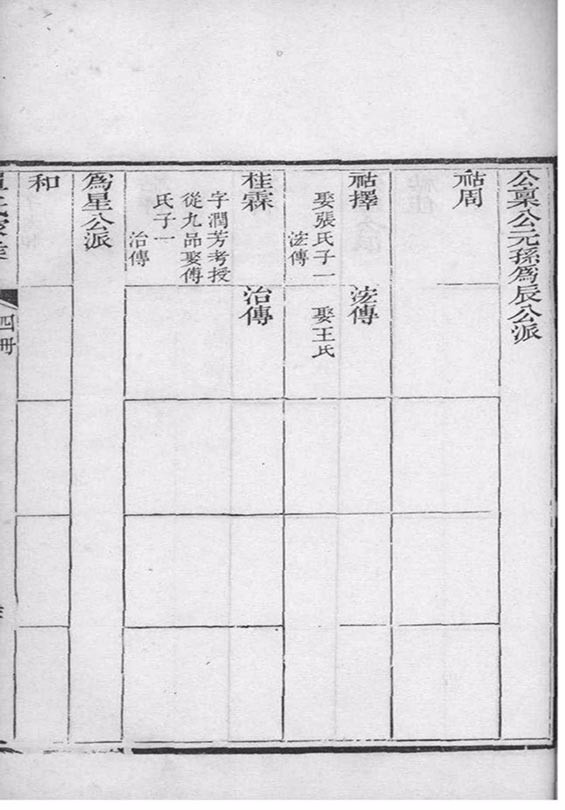 公稟公元孫為辰公派
祜周
祜擇
娶張氏子一
法傳
法傳
娶王氏
桂霖
字潤芳考授
從九品娶傅
氏子一
治傳
治傳
為星公派
和
四冊